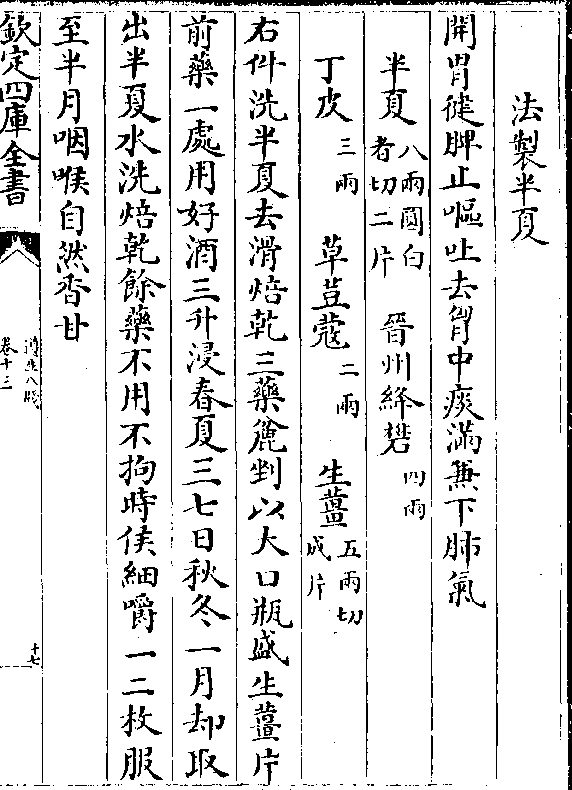 法製半夏
開胃健脾止嘔吐去胸中痰滿兼下肺氣
半夏八兩圓白者切二片 晉州絳礬四兩
丁皮三兩 草荳蔻二兩 生薑五兩切成片
右件洗半夏去滑焙乾三藥麄剉以大口瓶盛生薑片
前藥一處用好酒三升浸春夏三七日秋冬一月却取
出半夏水洗焙乾餘藥不用不拘時候細嚼一二枚服
至半月咽喉自然香甘
欽定四庫全書
遵生八牋
卷十三
十七